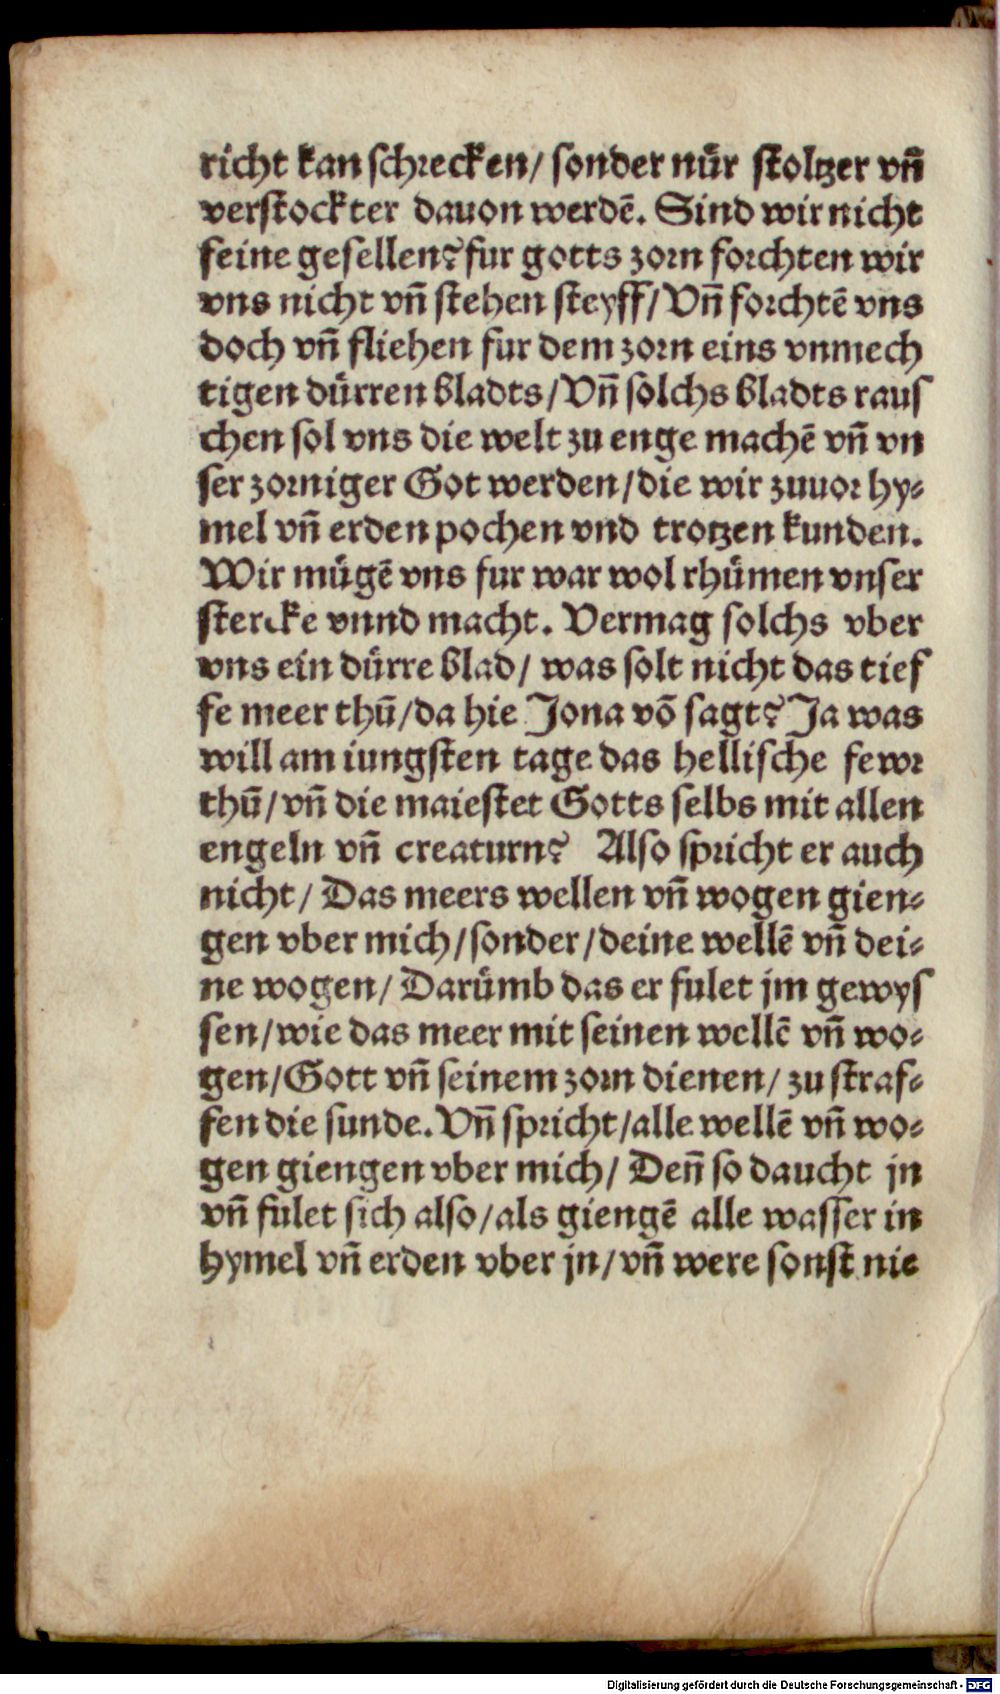 richt kan schrecken/ sonder nür stoltzer vñ
verstockter dauon werdē. Sind wir nicht
feine gesellen? fur gotts zorn forchten wir
vns nicht vñ stehen steyff/ Vñ forchtē vns
doch vñ fliehen fur dem zorn eins vnmech
tigen dürren bladts/ Vñ solchs bladts raus
chen sol vns die welt zu enge machē vñ vn
ser zorniger Got werden/ die wir zuuor hy⸗
mel vñ erden pochen vnd trotzen kunden.
Wir mügē vns fur war wol rhümen vnser
stercke vnnd macht. Vermag solchs vber
vns ein dürre blad/ was solt nicht das tief
fe meer thū/ da hie Jona võ sagt? Ja was
will am iungsten tage das hellische fewr
thū/ vñ die maiestet Gotts selbs mit allen
engeln vñ creaturn? Also spricht er auch
nicht/ Das meers wellen vñ wogen gien⸗
gen vber mich/ sonder/ deine wellē vñ dei⸗
ne wogen/ Darümb das er fulet jm gewys
sen/ wie das meer mit seinen wellē vñ wo⸗
gen/ Gott vñ seinem zorn dienen/ zu straf⸗
fen die sunde. Vñ spricht/ alle wellē vñ wo⸗
gen giengen vber mich/ Deñ so daucht jn
vñ fulet sich also/ als giengē alle wasser in
hymel vñ erden vber jn/ vñ were sonst nie
Digitalisierung gefördert durch die Deutsche Forschungsgemeinschaft - DFG